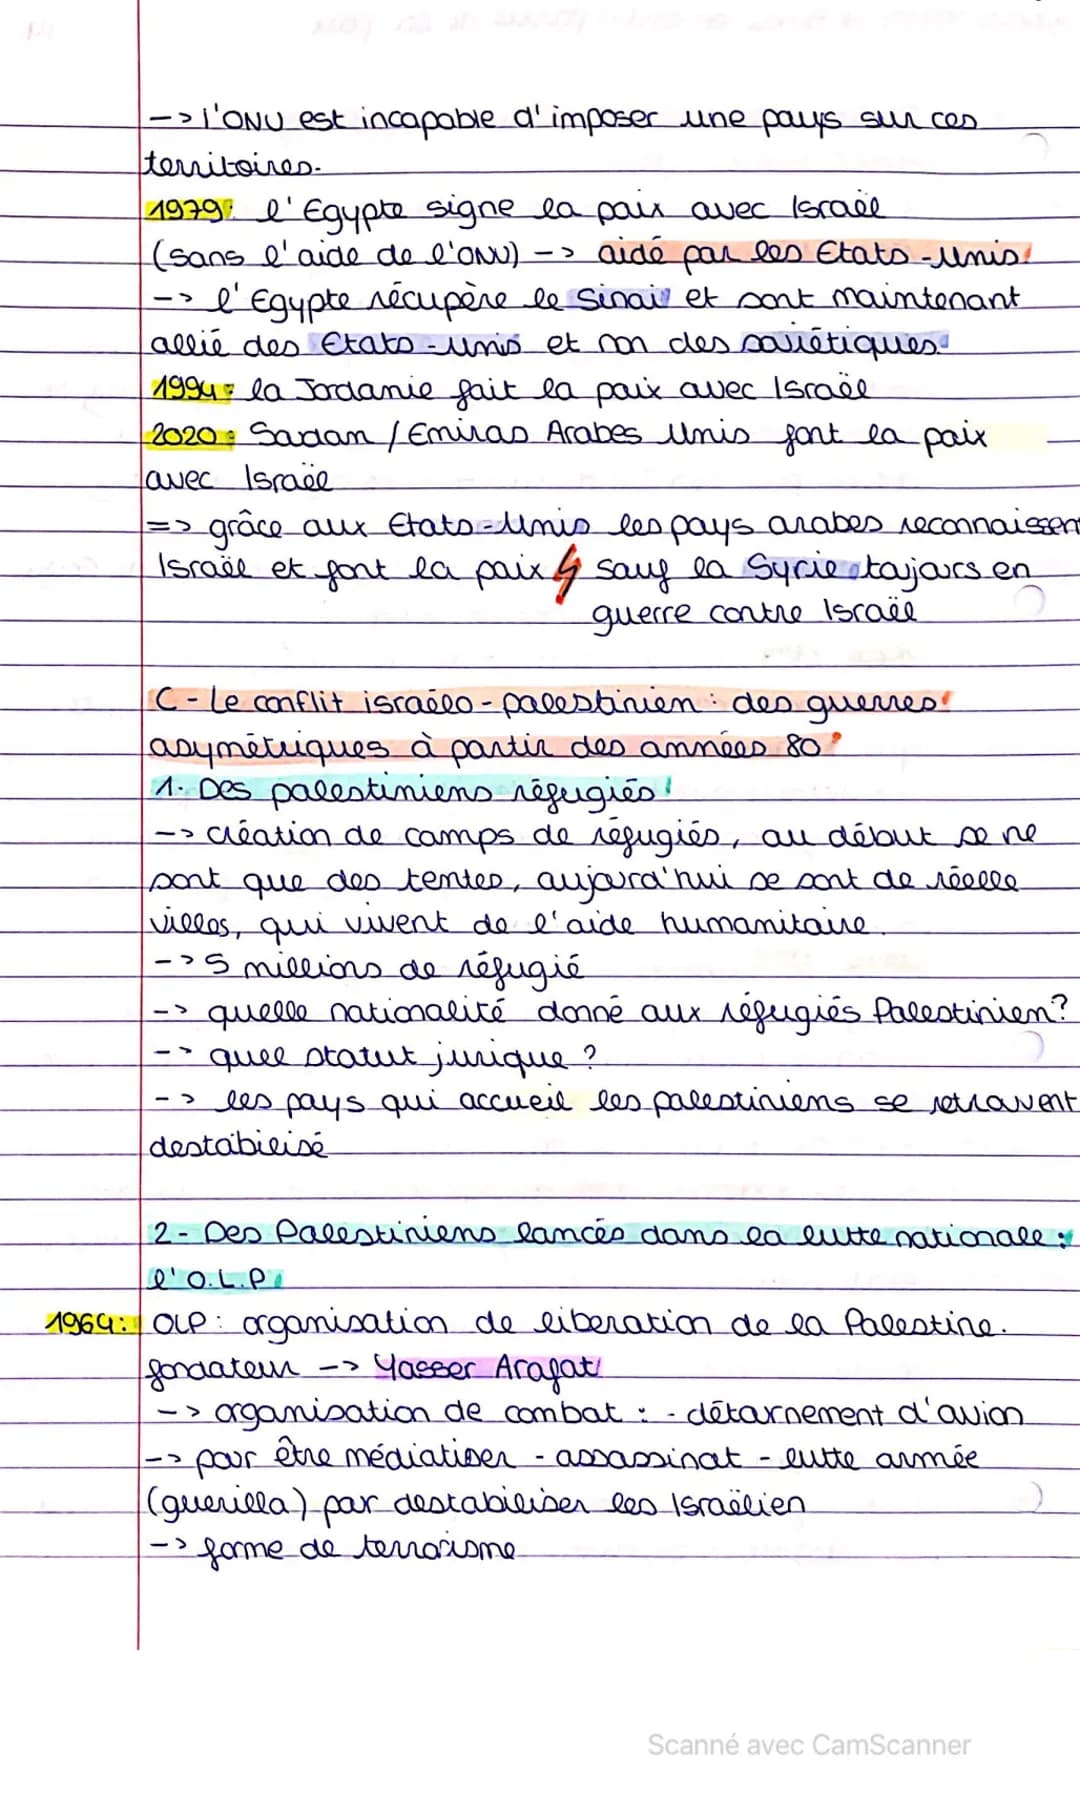 -> l'ONU est incapable d'imposer une pays sur ces
territoires.
1979: l'Egypte signe la paix avec Israël
(sans l'aide de l'ONU) -> aidé par les Etats-Unis.
-> l'Egypte récupère le Sinaï et sont maintenant
allié des Etats-unis et non des soviétiques.
1994: la Jordanie fait la paix avec Israël
2020: Soudan / Emiras Arabes Unis font la paix
avec Israël
=> grâce aux Etats-Unis les pays arabes reconnaissent
Israël et font la paix sauf la Syrie toujours en
guerre contre Israël
C - Le conflit israëlo - palestinien : des guerres
asymétriques à partir des années 80
1. Des palestiniens réfugiés
-> création de camps de réfugiés, au début se ne
sont que des tentes, aujourd'hui se sont de réelle
villes, qui vivent de l'aide humanitaire.
-> 5 millions de réfugié
-> quelle nationalité donné aux réfugiés Palestinien?
-> quel statut jurique ?
-> les pays qui accueil les palestiniens se retrouvent
destabilisé
2 - Des Palestiniens lancés dans la lutte nationale :
l'O.L.P.
1964: OLP : organisation de liberation de la Palestine.
fondateur -> Yasser Arafat
-> organisation de combat : - détournement d'avion
-> pour être médiatiser - assassinat - lutte armée
(guerilla) pour destabiliser les Israëlien
-> forme de terrorisme
Scanné avec CamScanner